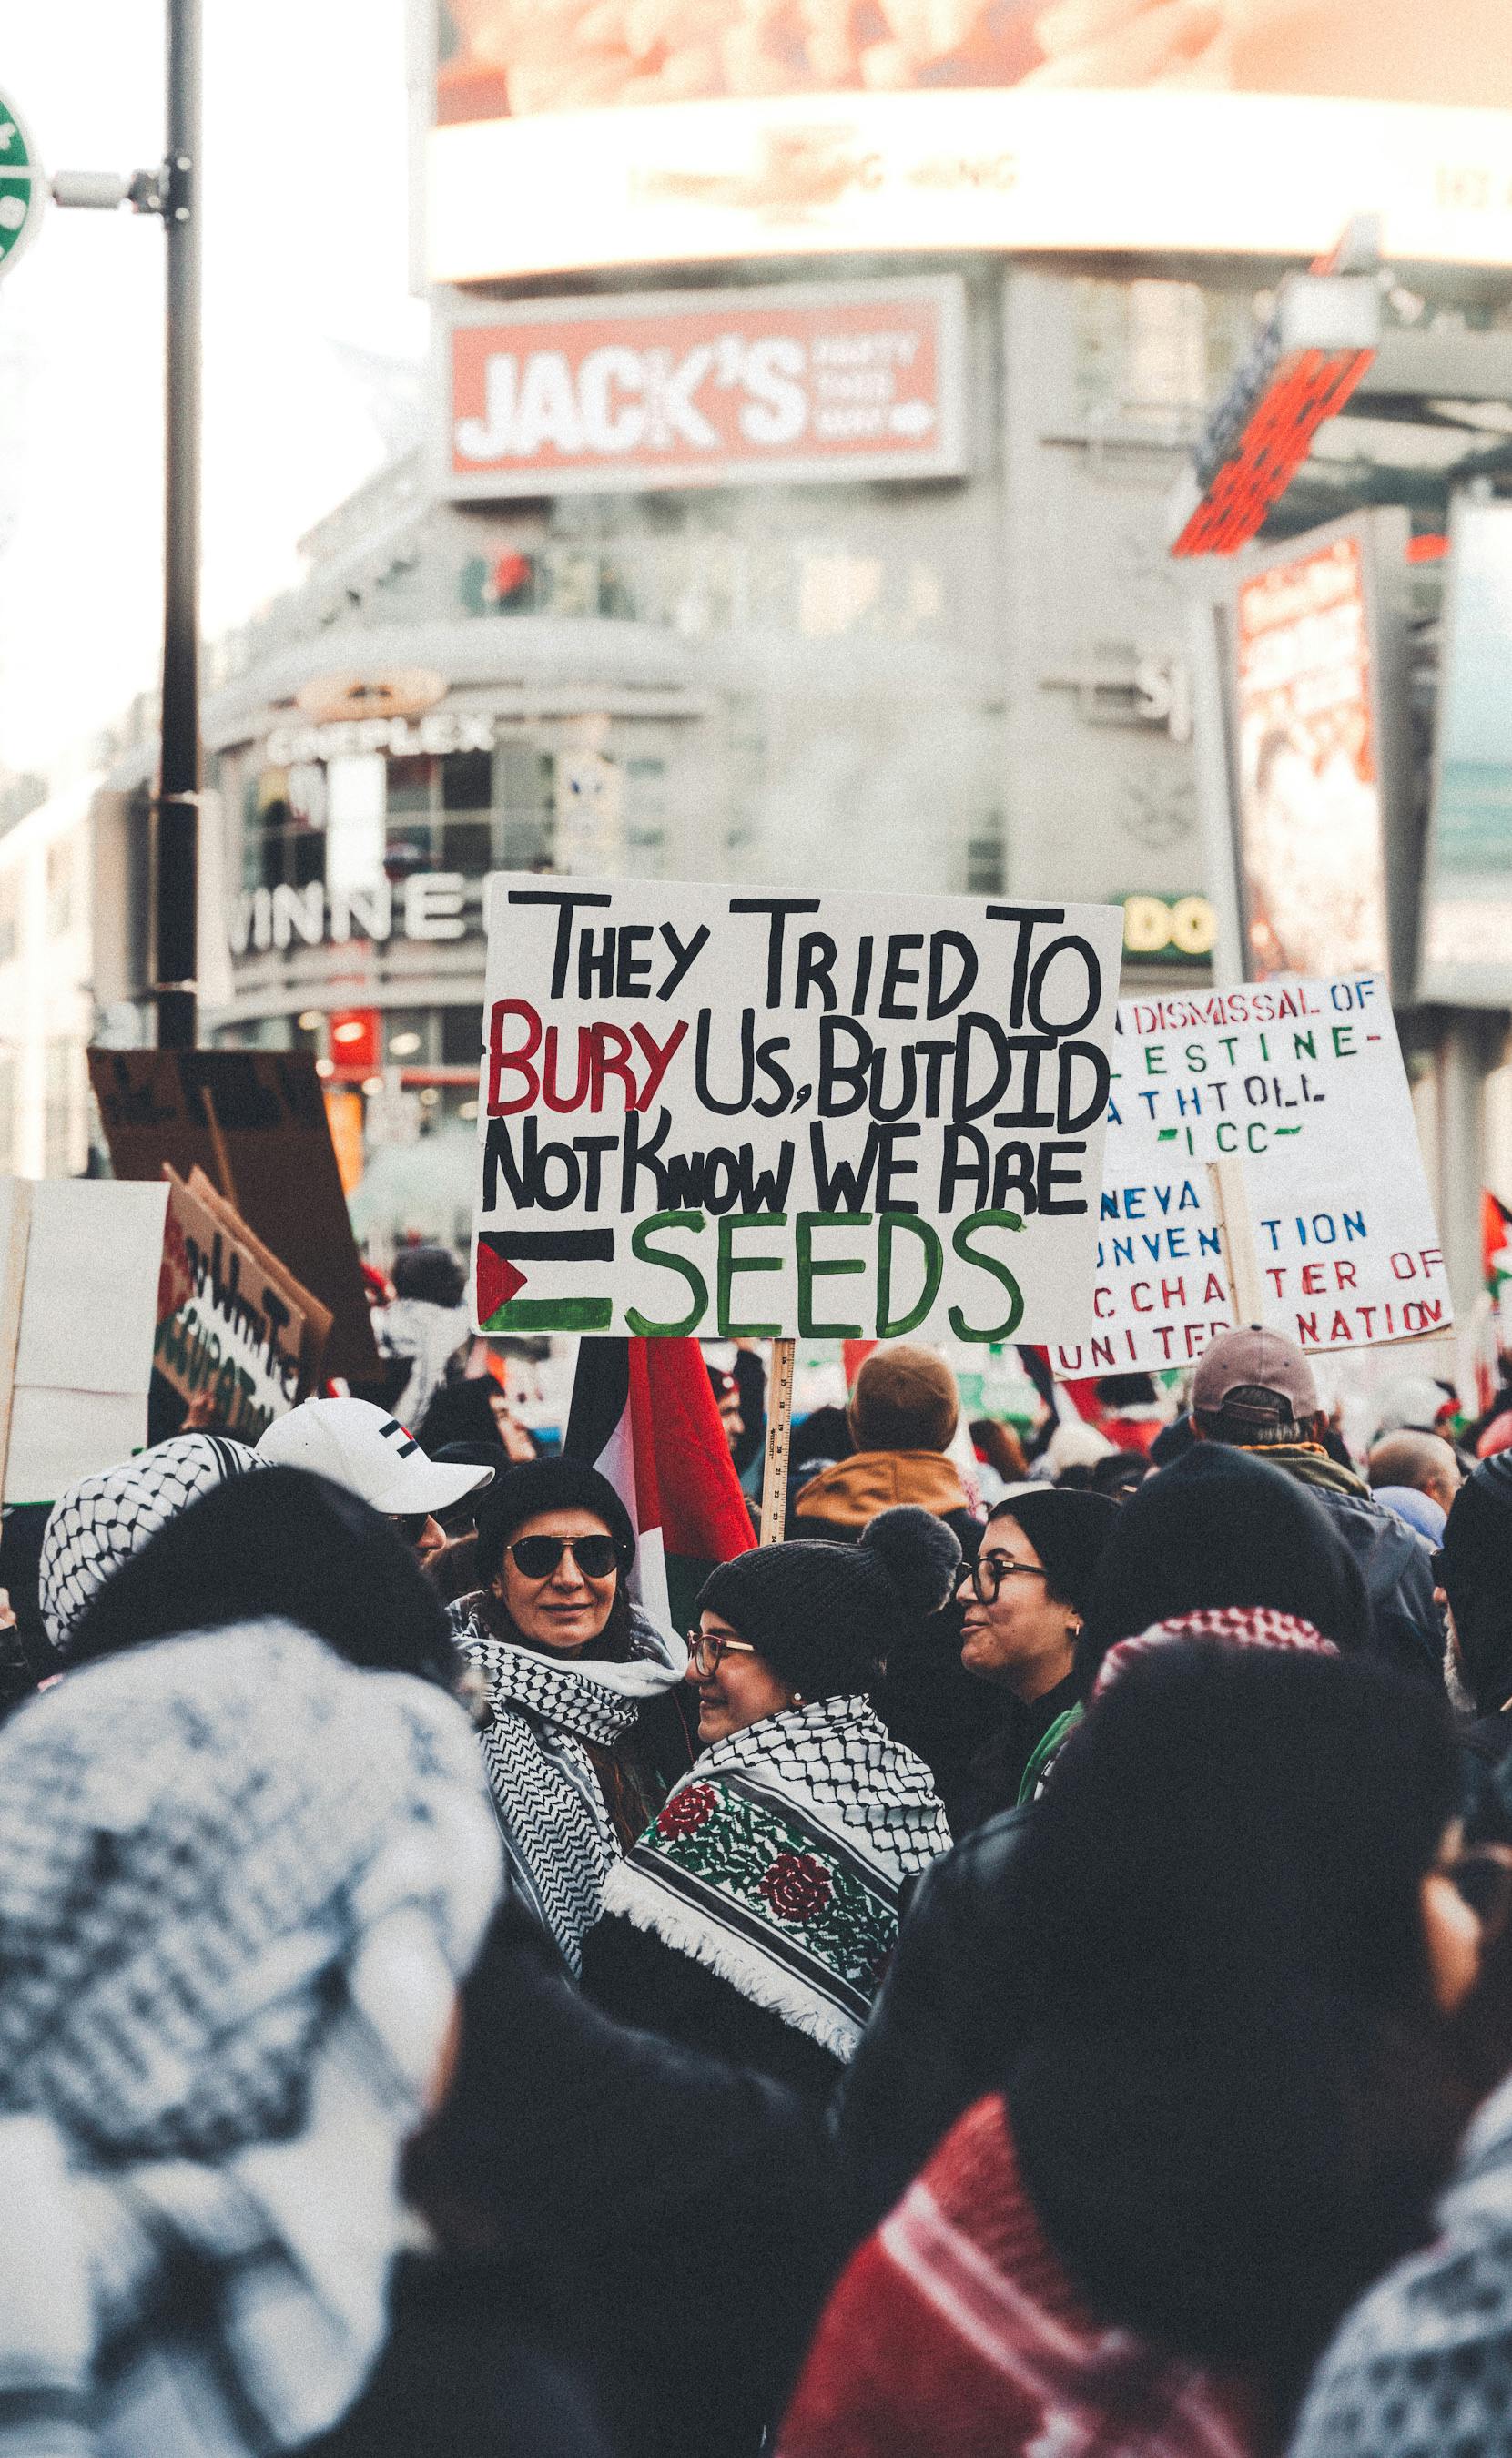 JACK'S
PARTY
THIS
WAY
CINEPLEX
WINNE
DO
THEY TRIED TO
BURY US, BUT DID
NOT KNOW WE ARE
SEEDS
DISMISSAL OF
LESTINE-
ATHTOLL
-ICC-
NEVA
ONVENTION
C CHARTER OF
UNITED NATION